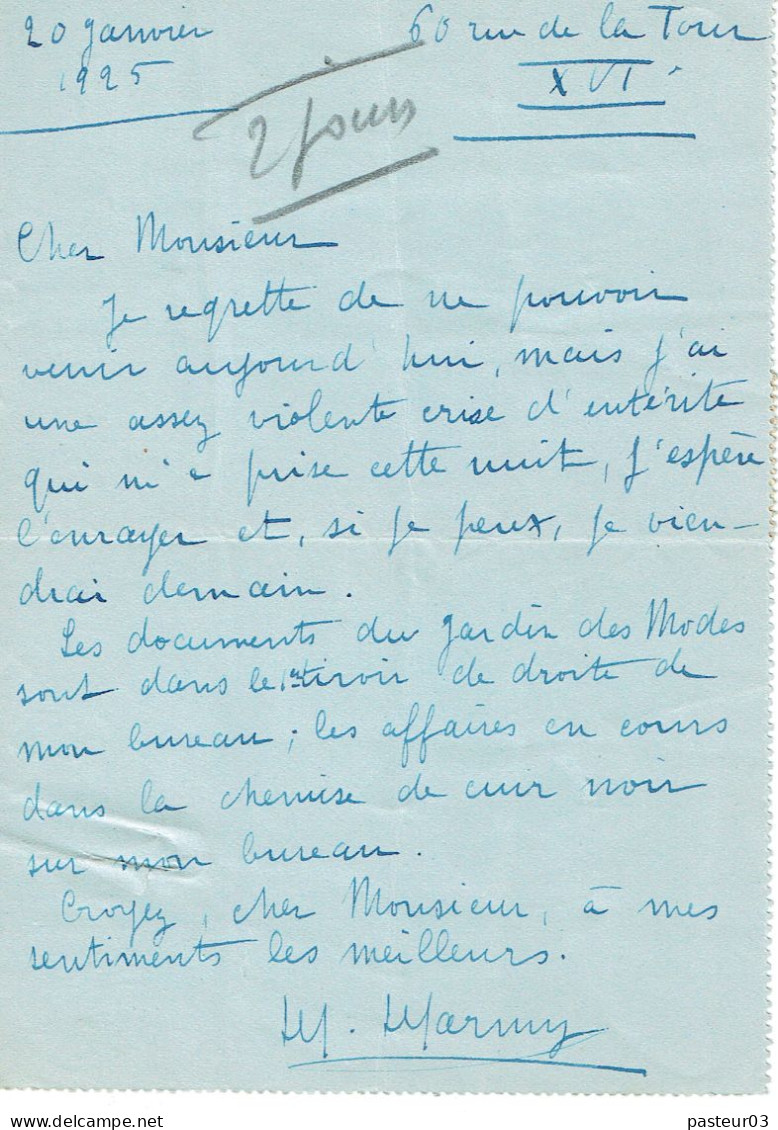 20 janvier
1925
60 rue de la Tour
XVI
2 jours
Cher Monsieur
Je regrette de ne pouvoir
venir aujourd'hui, mais j'ai
une assez violente crise d'entérite
qui m'a prise cette nuit, j'espère
l'enrayer et, si je peux, je vien-
drai demain.
Les documents du Jardin des Modes
sont dans le 1er tiroir de droite de
mon bureau ; les affaires en cours
dans la chemise de cuir noir
sur mon bureau.
Croyez, cher Monsieur, à mes
sentiments les meilleurs.
M.
pasteur03